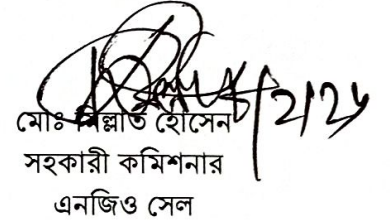 মোঃ মিল্লাত হোসেন
সহকারী কমিশনার
এনজিও সেল